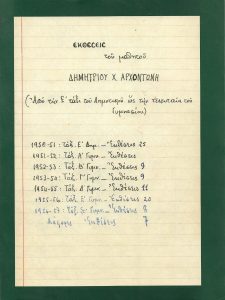 ΕΚΘΕΣΕΙΣ
τοῦ μαθητοῦ
ΔΗΜΗΤΡΙΟΥ Χ. ΑΡΧΟΝΤΩΝΗ
(Ἀπό τήν Ε΄ τάξι τοῦ Δημοτικοῦ ὥς τήν τελευταία τοῦ
Γυμνασίου)
1950-51: Τάξ. Ε΄ Δημ. – Ἐκθέσεις 25
1951-52: Τάξ. Α΄ Γυμν. – Ἐκθέσεις
1952-53: Τάξ. Β΄ Γυμν. – Ἐκθέσεις 9
1953-54: Τάξ. Γ΄ Γυμν. – Ἐκθέσεις 9
1954-55: Τάξ. Δ΄ Γυμν. – Ἐκθέσεις 11
1955-56: Τάξ. Ε΄ Γυμν. – Ἐκθέσεις 20
1956-57: Τάξ. Γυμν. – Ἐκθέσεις 8
Διάφορες Ἐκθέσεις 7